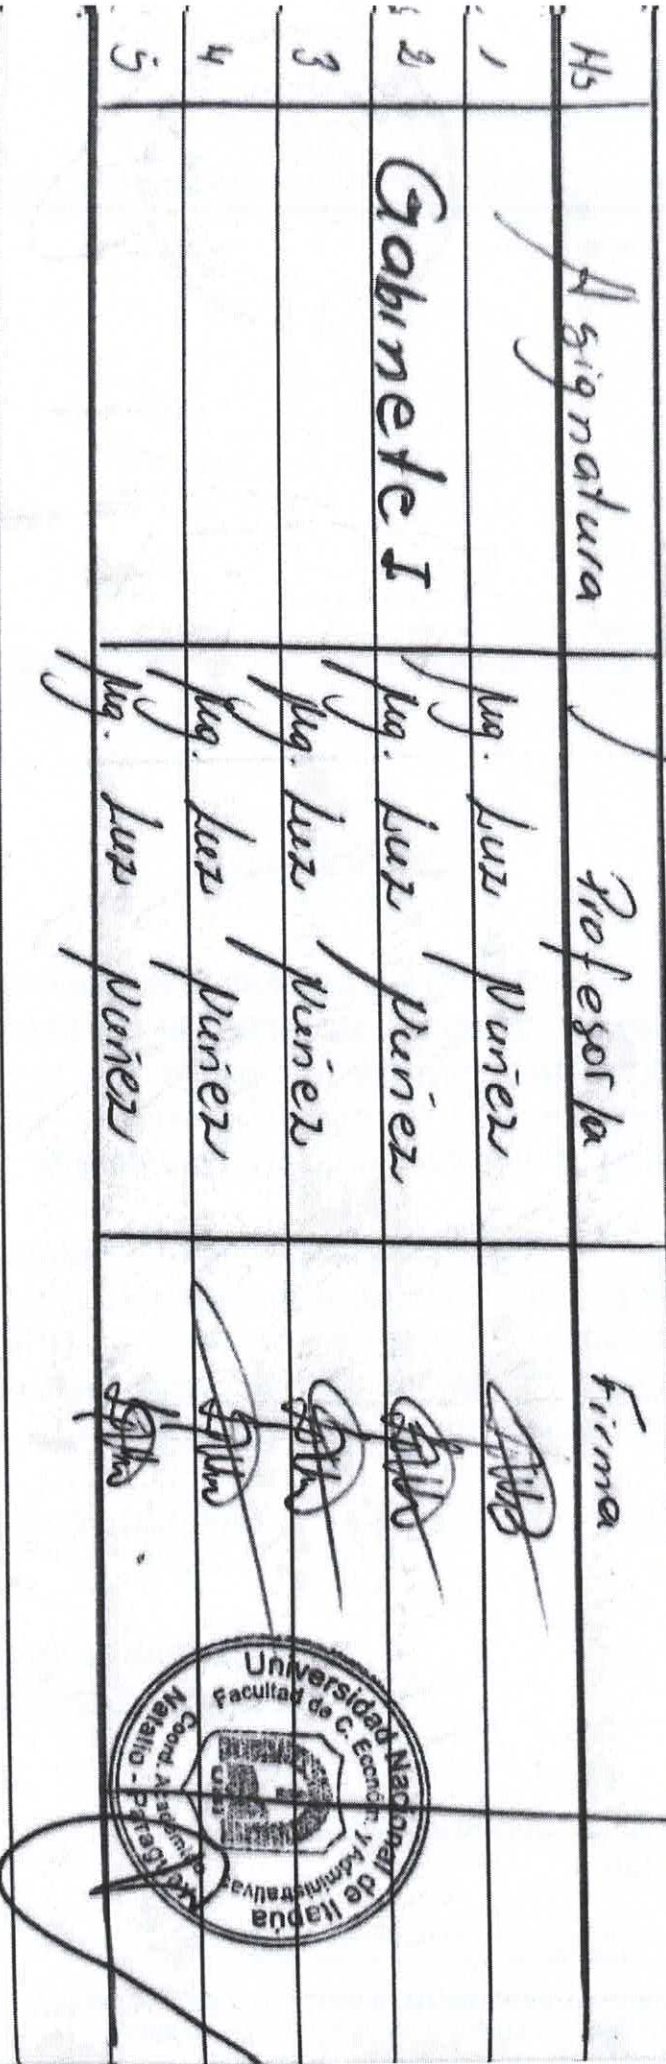 Hs Asignatura Profesor/a Firma
1 Mg. Luz Nuñez
2 Gabinete I Mg. Luz Nuñez
3 Mg. Luz Nuñez
4 Mg. Luz Nuñez
5 Mg. Luz Nuñez
Universidad Nacional de Itapúa
Facultad de C. Econom. y Administrativas
Coord. Académica
Natalio - Paraguay